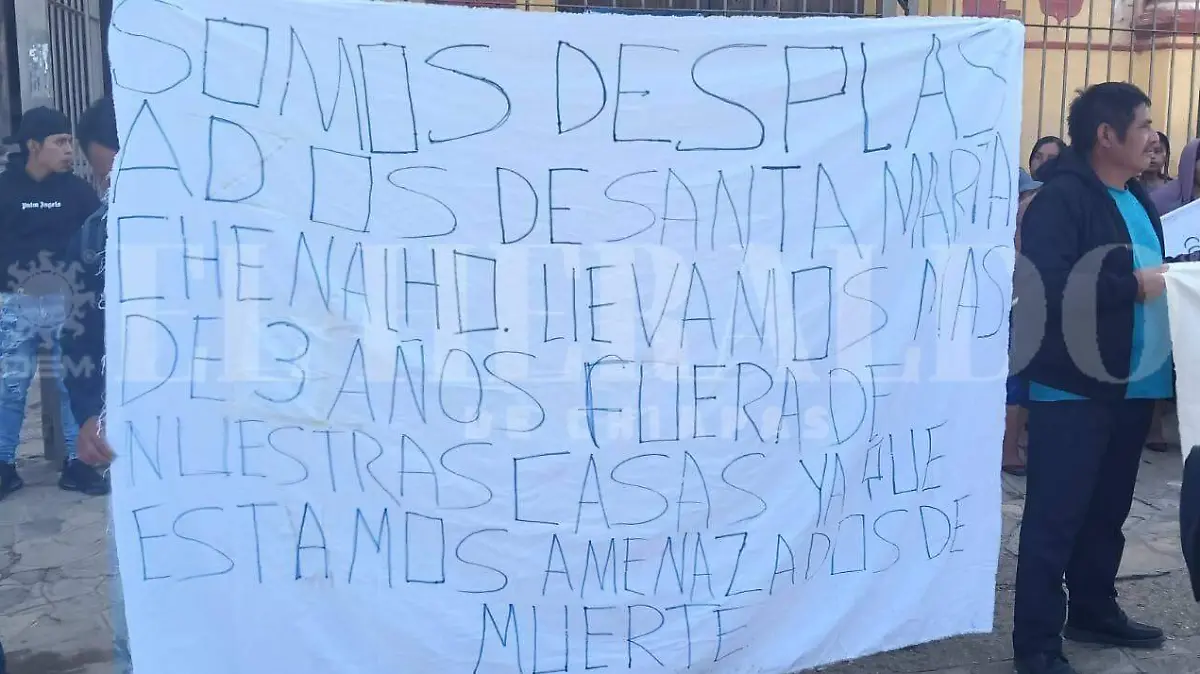 SOMOS DESPLAS
ADOS DE SANTA MARTA
CHENALHO. LLEVAMOS MAS
DE 3 AÑOS FUERA DE
NUESTRAS CASAS YA QUE
ESTAMOS AMENAZADOS DE
MUERTE
Palm Angels
EL HERALDO
DE CHIAPAS
OEM